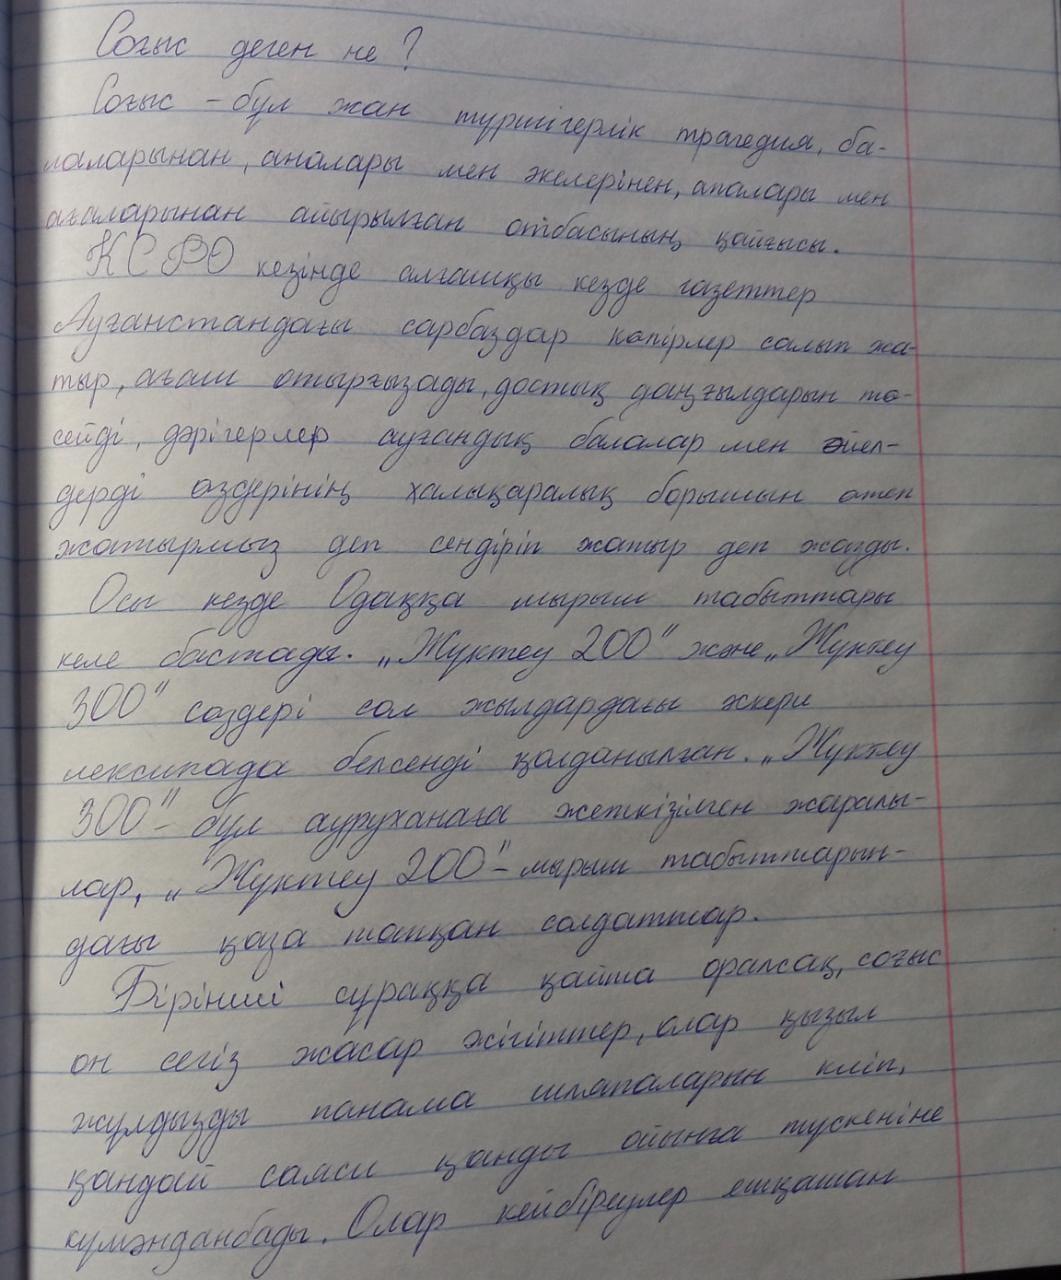 Соғыс деген не?
Соғыс – бұл жан түршігерлік трагедия, ба-
лаларынан, аналары мен әкелерінен, апалары мен
ағаларынан айырылған отбасының қайғысы.
КСРО кезінде алғашқы кезде газеттер
Ауғанстандағы сарбаздар көпірлер салып жа-
тыр, ағаш отырғызады, достық даңғылдарын тө-
сейді, дәрігерлер ауғандық балалар мен әйел-
дерді өздерінің халықаралық борышын өтеп
жатырмыз деп сендіріп жатыр деп жазды.
Осы кезде Одаққа мырыш табыттары
келе бастады. „Жүктеу 200" және „Жүктеу
300" сөздері сол жылдардағы әскери
лексикада белсенді қолданылған. „Жүктеу
300" – бұл ауруханаға жеткізілген жаралы-
лар, „Жүктеу 200" – мырыш табыттарын-
дағы қаза тапқан солдаттар.
Бірінші сұраққа қайта оралсақ, соғыс
он сегіз жасар жігіттер, олар қызыл
жұлдызды панама шляпаларын киіп,
қандай қанды ойынға түскеніне
күмәнданбады. Олар кейбіреулер ешқашан